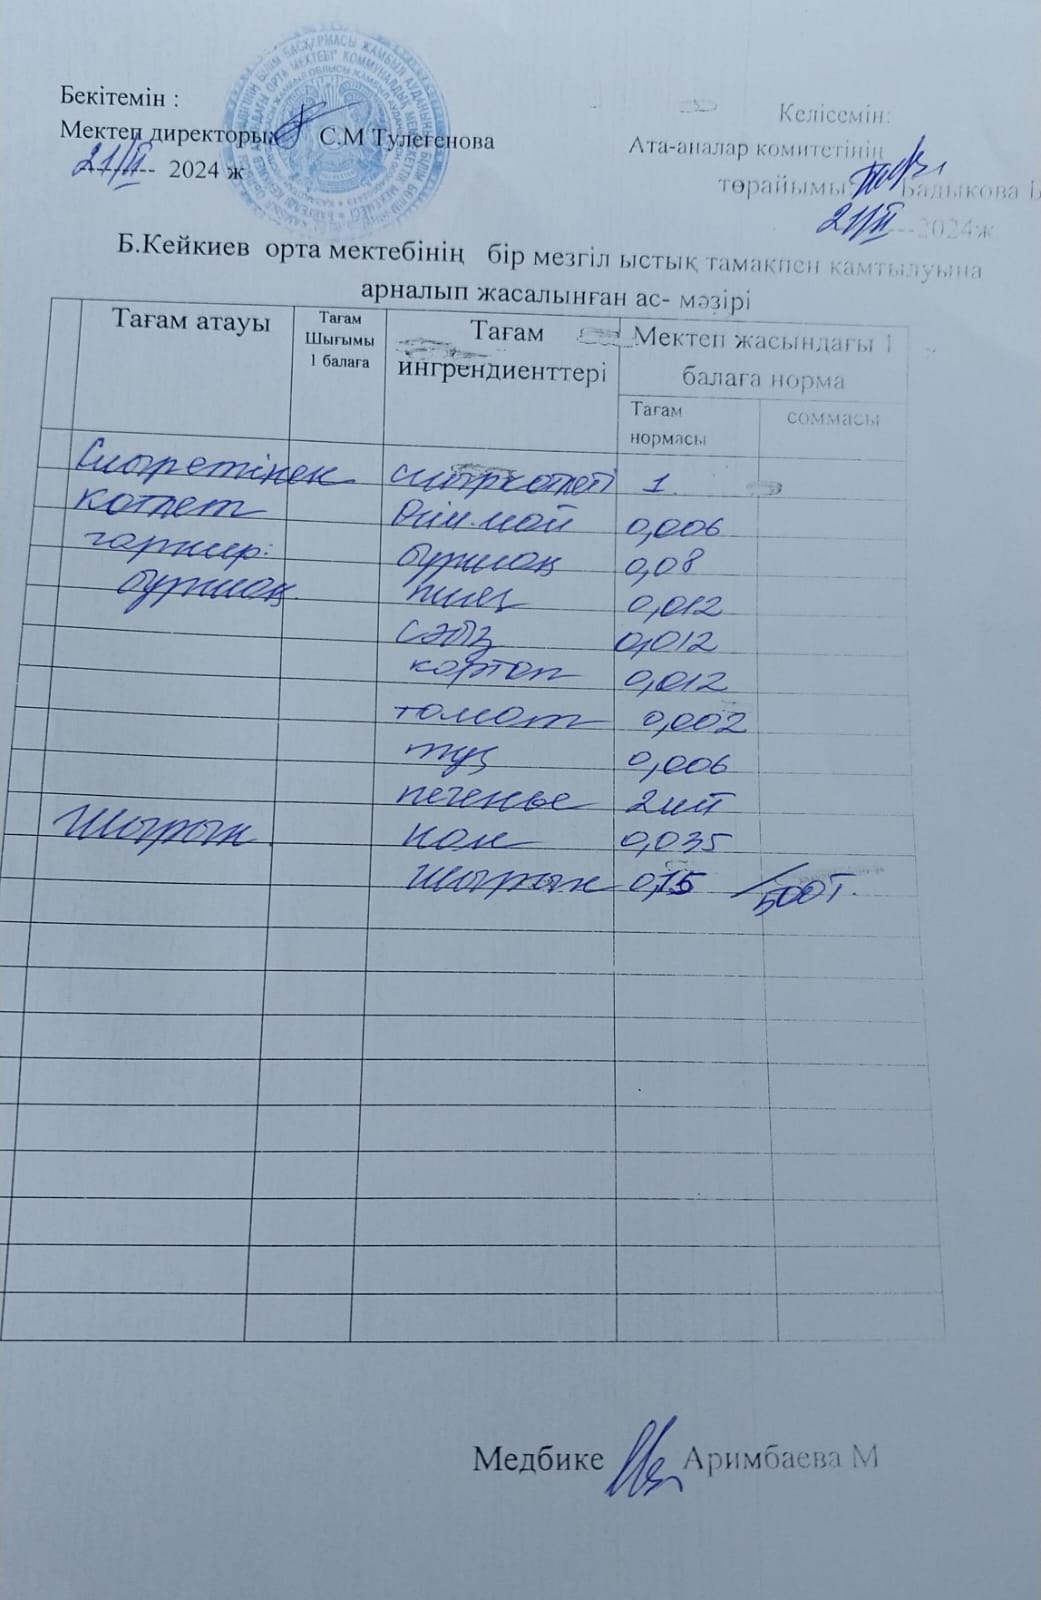 Бекітемін :
Мектеп директоры С.М Тулегенова
21/ІІ 2024 ж
Келісемін:
Ата-аналар комитетінің
төрайымы Бадыкова
21/ІІ ---2024ж
Б.Кейкиев орта мектебінің бір мезгіл ыстық тамақпен қамтылуына
арналып жасалынған ас- мәзірі
Тағам атауы
Тағам
Шығымы
1 балаға
Тағам
ингрендиенттері
Мектеп жасындағы 1
балаға норма
Тағам
нормасы
соммасы
Сиыр етінен сиыр котлеті 1
котлет өсім.май 0,006
гарнир: бұршақ 0,08
бұршақ пияз 0,012
сәбіз 0,012
картоп 0,012
томат 0,002
тұз 0,006
печенье 2шт
Шырын нан 0,035
шырын 0,15 /500т.
Медбике Аримбаева М